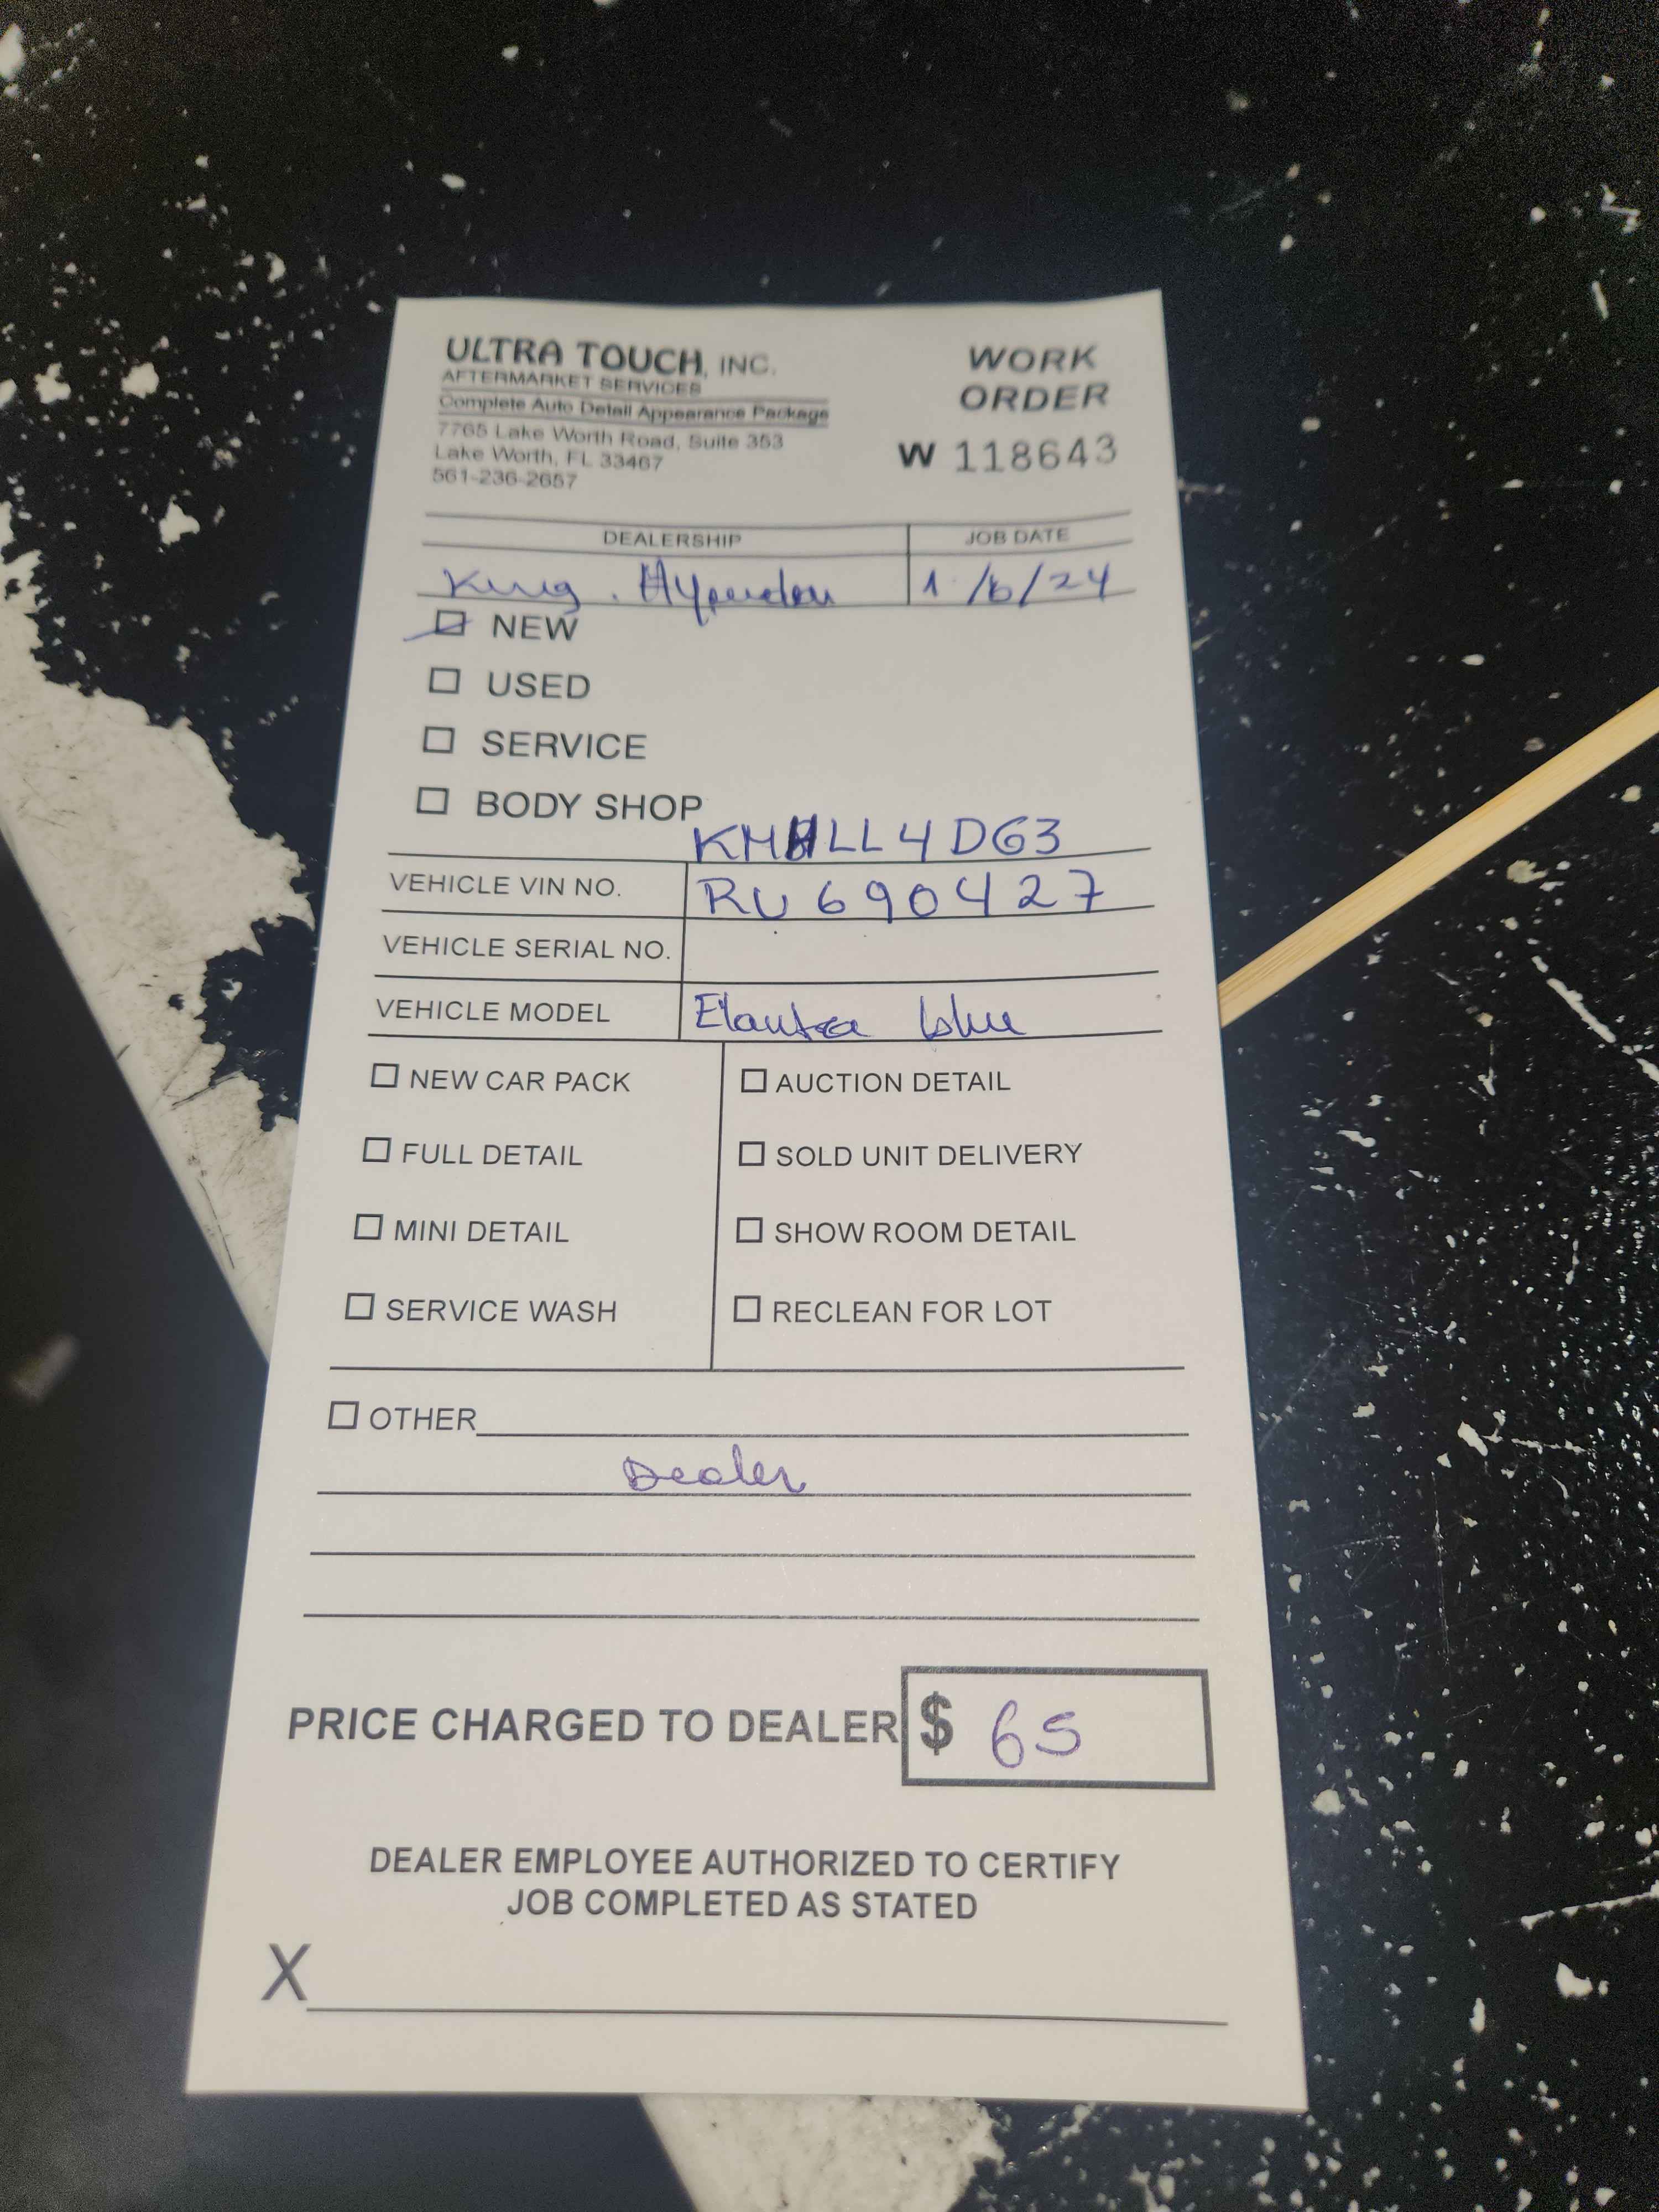 ULTRA TOUCH, INC.
AFTERMARKET SERVICES
Complete Auto Detail Appearance Package
7765 Lake Worth Road, Suite 353
Lake Worth, FL 33467
561-236-2657
WORK
ORDER
W 118643
DEALERSHIP
JOB DATE
King
1/6/24
NEW
USED
SERVICE
BODY SHOP
KMHLL4DG3
VEHICLE VIN NO.
RU690427
VEHICLE SERIAL NO.
VEHICLE MODEL
Elantra blue
NEW CAR PACK
FULL DETAIL
MINI DETAIL
SERVICE WASH
AUCTION DETAIL
SOLD UNIT DELIVERY
SHOW ROOM DETAIL
RECLEAN FOR LOT
OTHER
Dealer
PRICE CHARGED TO DEALER $ 65
DEALER EMPLOYEE AUTHORIZED TO CERTIFY
JOB COMPLETED AS STATED
X